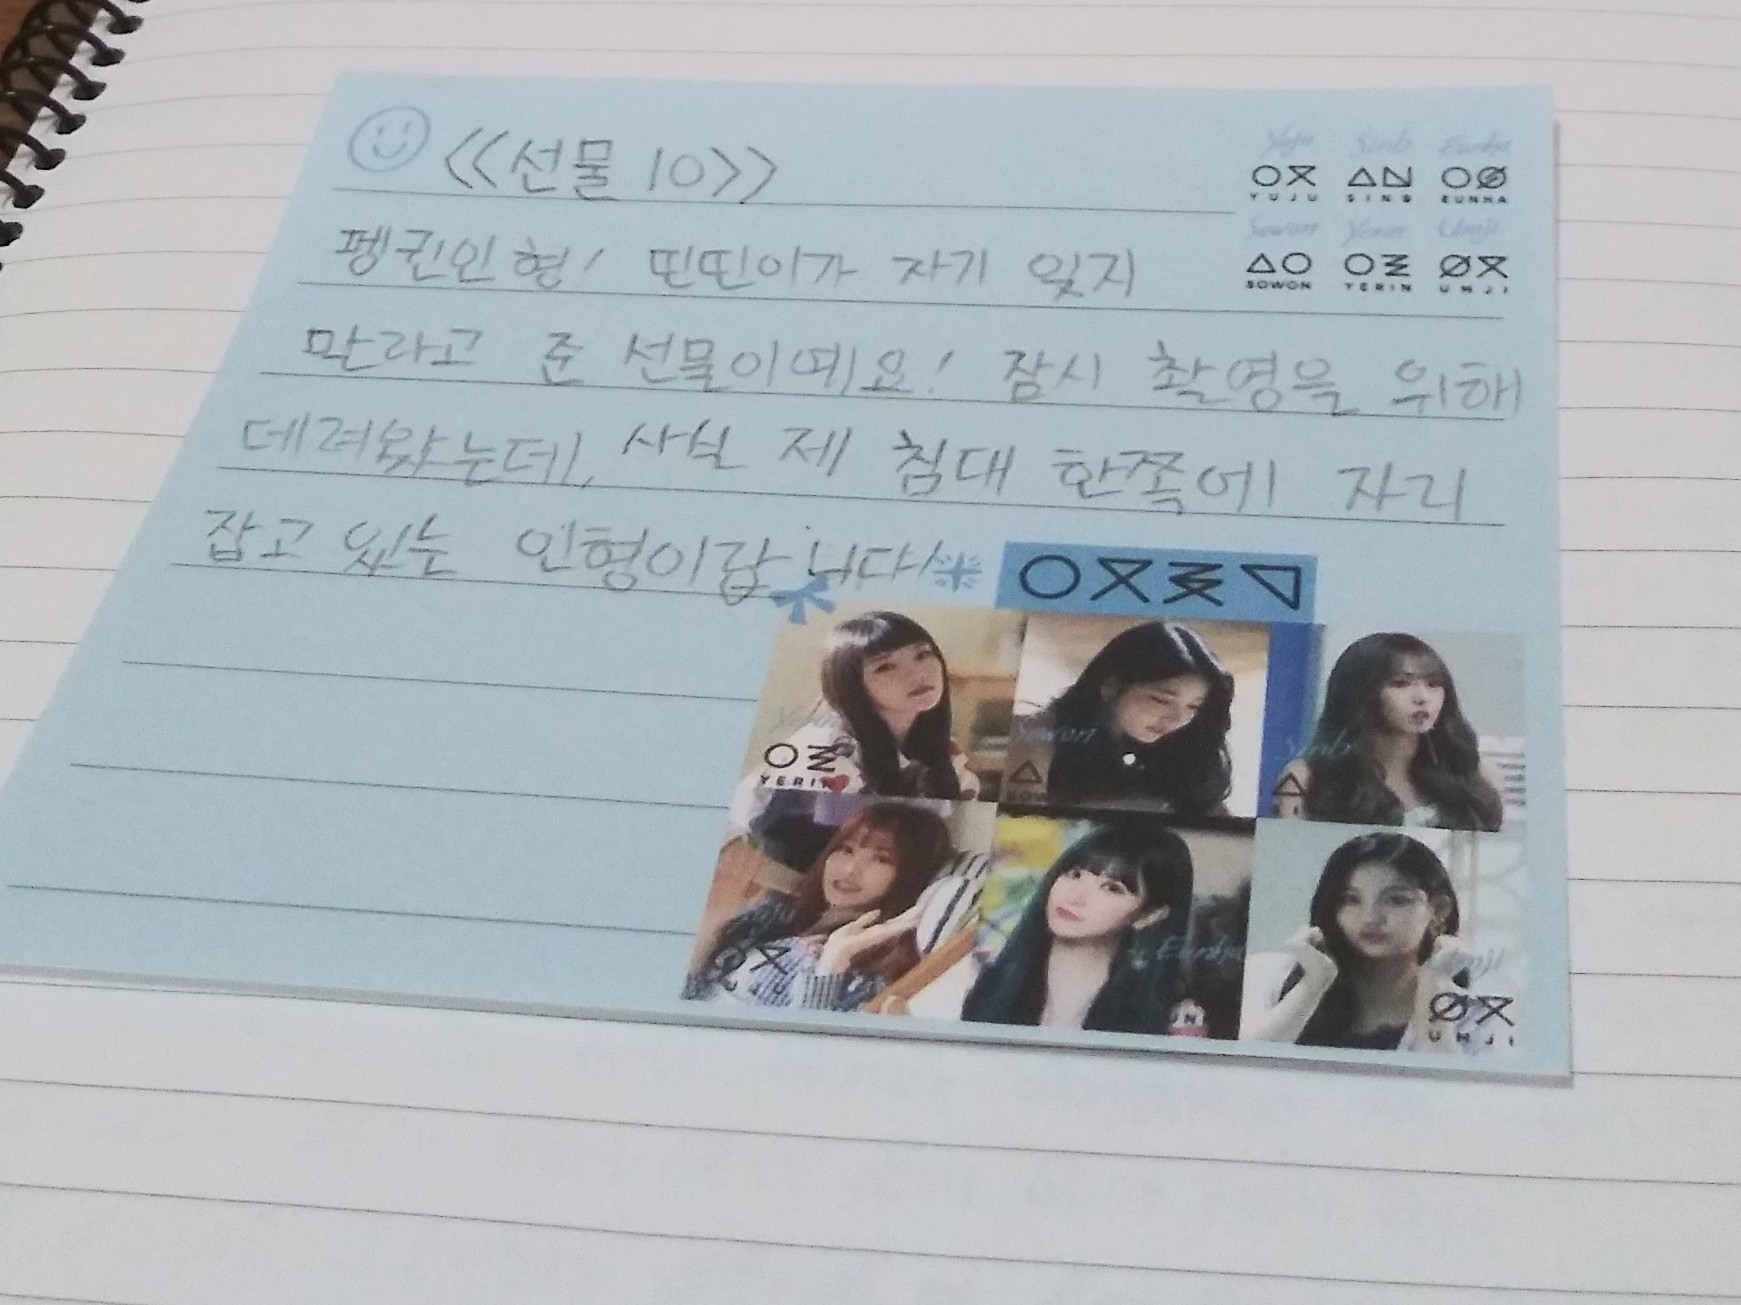 <<선물 10>>
Yuju Sinb Eunha
YUJU SINB EUNHA
Sowon Yerin Umji
SOWON YERIN UMJI
펭귄인형! 띤띤이가 자기 잊지
말라고 준 선물이에요! 잠시 촬영을 위해
데려왔는데, 사실 제 침대 한쪽에 자리
잡고 있는 인형이랍니다!
Yerin Sowon Sinb
YERIN SOW
Yuju Eunha Umji
UMJI